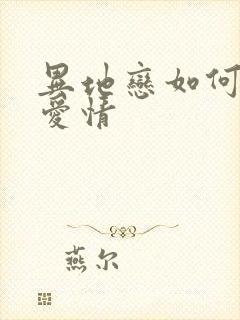 異地戀如何
愛情
燕尔